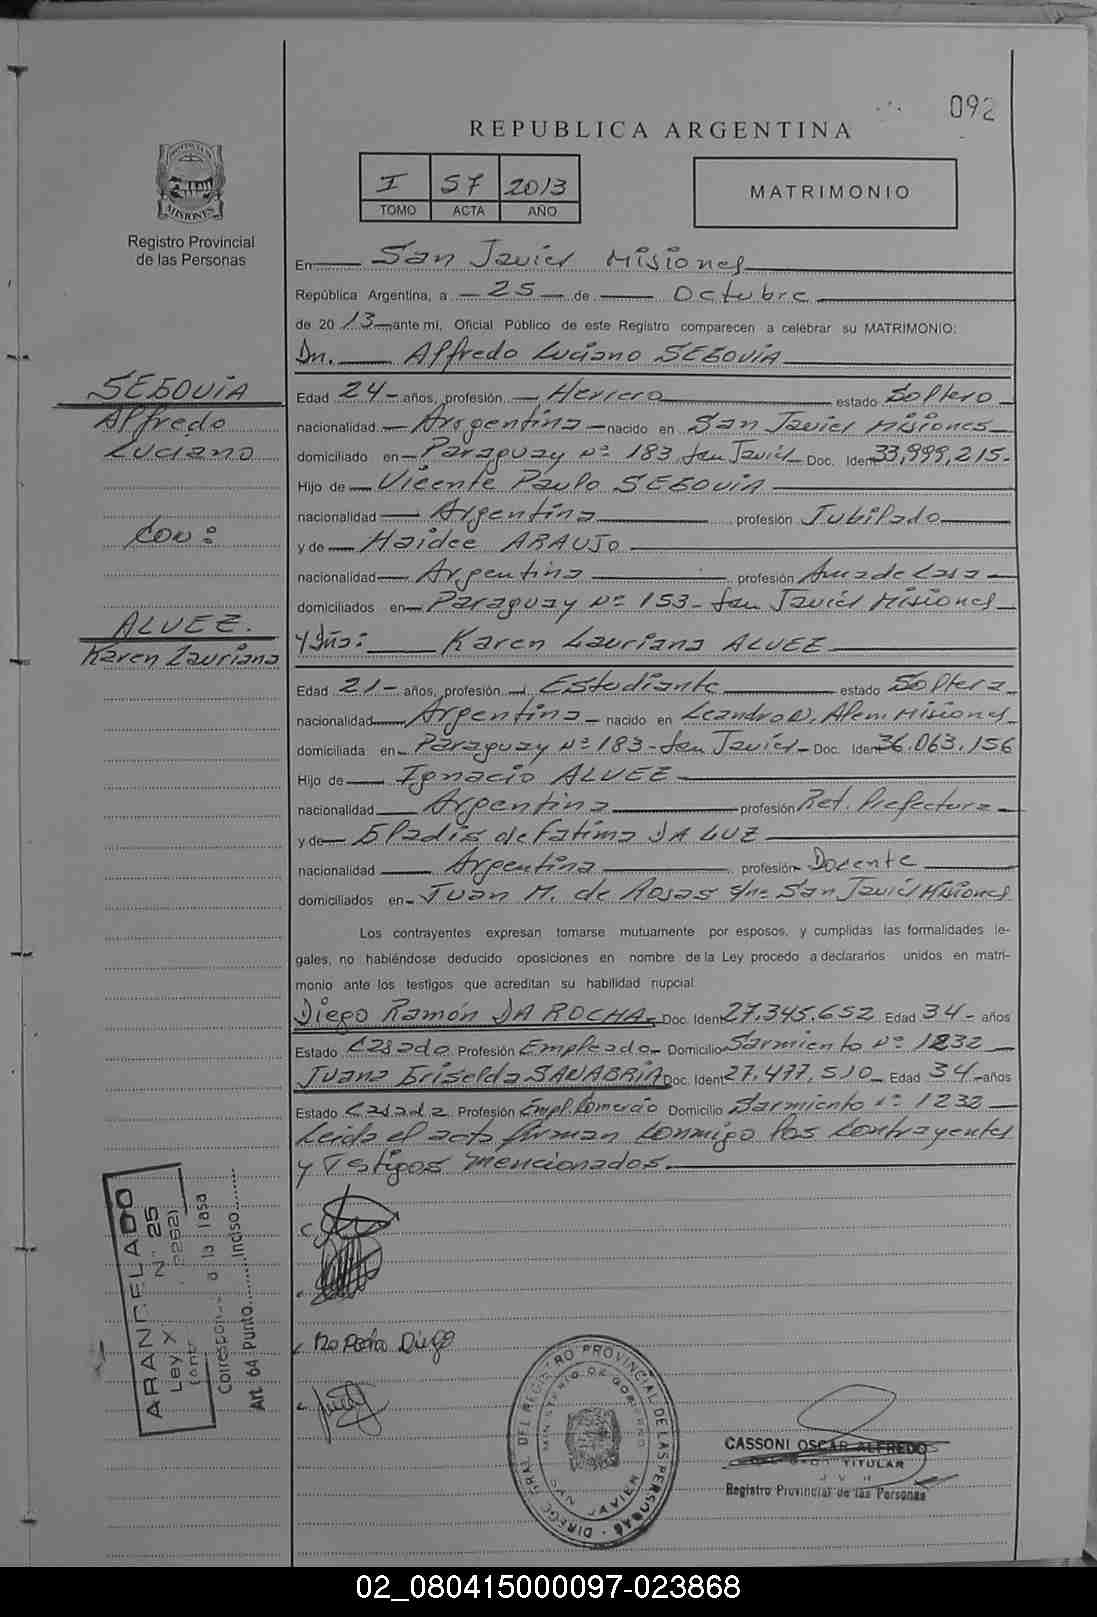 092
REPUBLICA ARGENTINA
I 57 2013
TOMO ACTA AÑO
MATRIMONIO
PROVINCIA DE
MISIONES
Registro Provincial
de las Personas
En San Javier Misiones
República Argentina, a 25 de Octubre
de 2013 ante mí, Oficial Público de este Registro comparecen a celebrar su MATRIMONIO:
Dn. Alfredo Luciano SEGOVIA
SEGOVIA
Alfredo
Luciano
Con:
ALVEZ.
Karen Lauriana
Edad 24 - años, profesión Herrero estado Soltero
nacionalidad Argentina nacido en San Javier Misiones
domiciliado en Paraguay Nº 183 San Javier Doc. Ident 33,999,215-
Hijo de Vicente Paulo SEGOVIA
nacionalidad Argentina profesión Jubilado
y de Haidee ARAUJO
nacionalidad Argentina profesión Ama de Casa
domiciliados en Paraguay Nº 153 - San Javier Misiones
y Dña: Karen Lauriana ALVEZ
Edad 21 - años, profesión Estudiante estado Soltera
nacionalidad Argentina nacido en Leandro N. Alem Misiones
domiciliada en Paraguay Nº 183 - San Javier - Doc. Ident 36.063.156
Hijo de Ignacio ALVEZ
nacionalidad Argentina profesión Ret. Prefectura
y de Eladis de Fatima DA LUZ
nacionalidad Argentina profesión Docente
domiciliados en Juan M. de Rosas s/nº San Javier Misiones
Los contrayentes expresan tomarse mutuamente por esposos, y cumplidas las formalidades le-
gales, no habiéndose deducido oposiciones en nombre de la Ley procedo a declararlos unidos en matri-
monio ante los testigos que acreditan su habilidad nupcial.
Diego Ramón DA ROCHA Doc. Ident 27.345.652 Edad 34 - años
Estado Casado Profesión Empleado Domicilio Sarmiento Nº 1232
Juana Griselda SANABRIA Doc. Ident 27.477.510 Edad 34 - años
Estado Casada Profesión Empl. Comercio Domicilio Sarmiento nº 1232
Leida el acta firman conmigo los contrayentes
y Testigos mencionados.
ARANCELADO
Ley X Nº 25
Corresponde a la tasa
Art. 64 Punto Inciso
Diego
DIREC. GRAL. DEL REGISTRO PROVINCIAL DE LAS PERSONAS
MINISTERIO DE GOBIERNO
SAN JAVIER
CASSONI OSCAR ALFREDO
TITULAR
Registro Provincial de las Personas
02_080415000097-023868